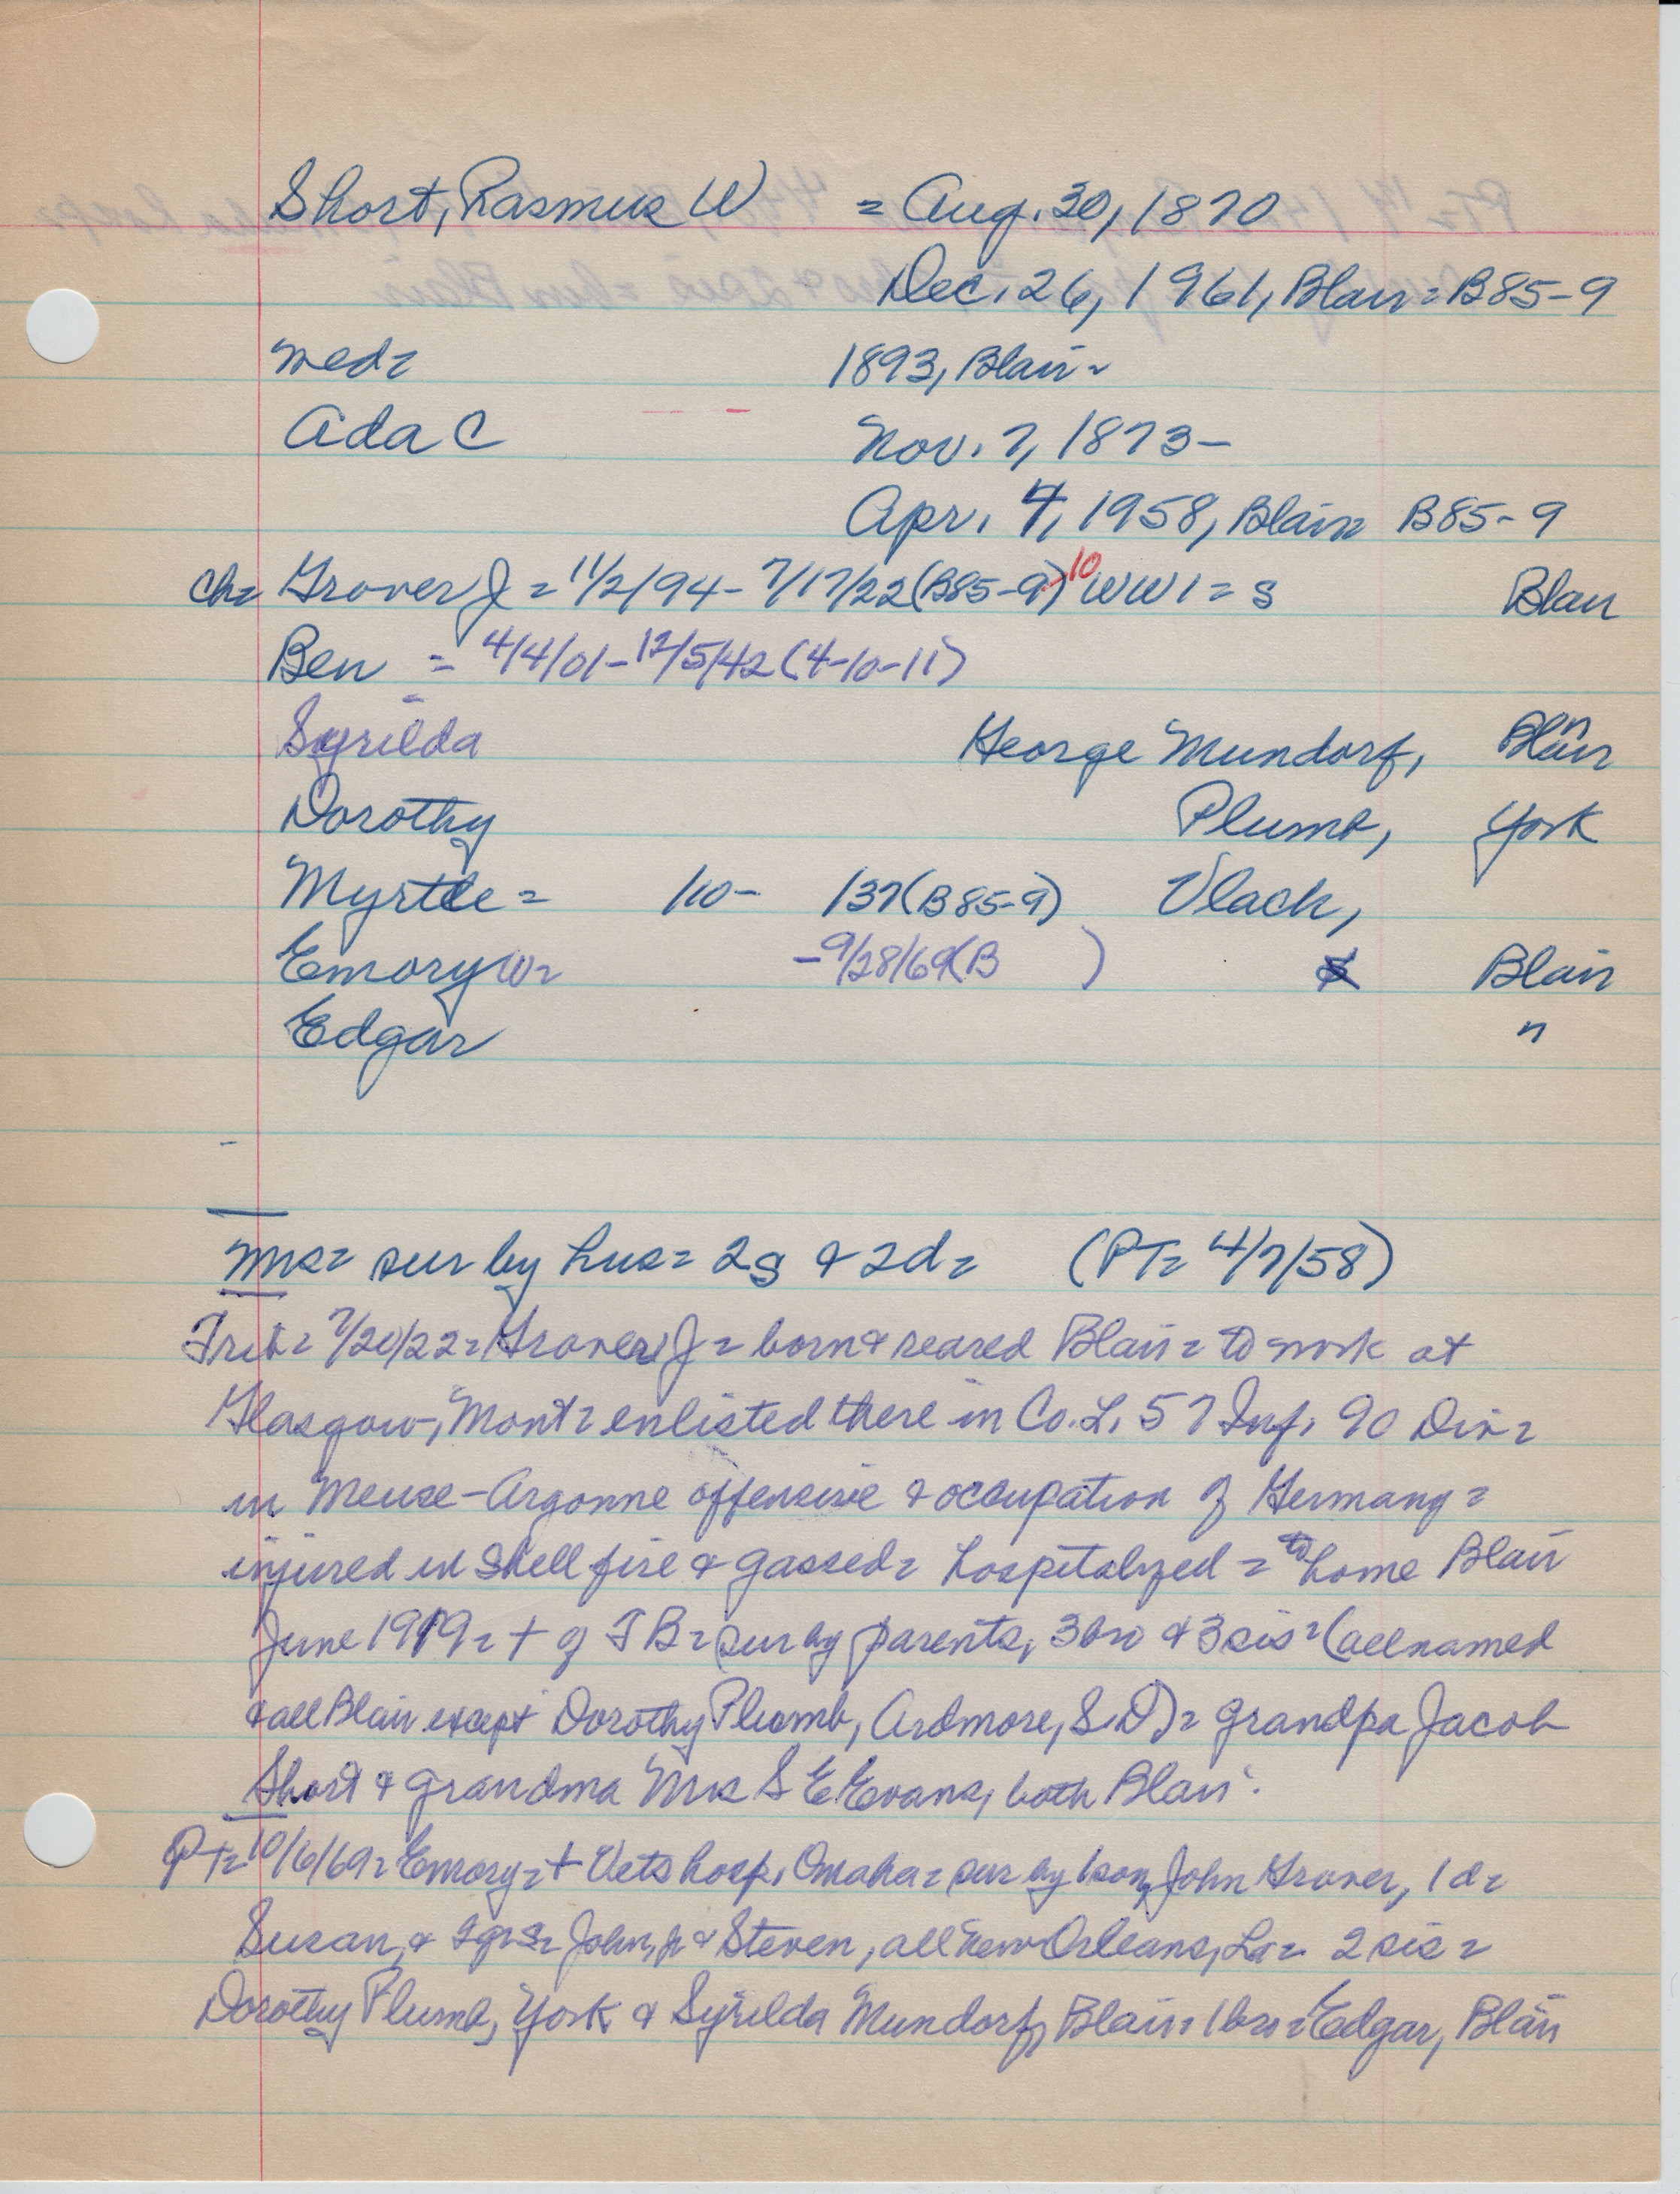 Short, Rasmus W = Aug. 30, 1870
Dec. 26, 1961, Blair = B85-9
med= 1893, Blair -
Ada C Nov. 7, 1873-
Apr. 4, 1958, Blair= B85-9
ch= Grover J = 11/2/94 - 7/17/22 (B85-9) 10 WW1 = s Blair
Ben = 4/4/01 - 12/5/42 (4-10-11)
Syrilda George Mundorf, Blair
Dorothy Plumb, York
Myrtle = /10- /37 (B85-9) Vlach,
Emory W= - 9/28/69 (B ) Blair
Edgar "
Mrs= sur by hus= 2s & 2d= (PT= 4/7/58)
Trib= 7/20/22= Grover J= born & reared Blair= to work at
Glasgow, Mont= enlisted there in Co. L, 57 Inf, 90 Div=
in Meuse-Argonne offensive & occupation of Germany=
injured in shell fire & gassed= hospitalyed= to home Blair
June 1919= + of TB= sur by parents, 3 bro & 3 sis= (all named
& all Blair except Dorothy Plumb, Ardmore, S.D)= grandpa Jacob
Short & grandma Mrs S E Evans, both Blair.
PT= 10/6/69= Emory= + Vets hosp, Omaha= sur by 1 son, John Grover, 1 d=
Susan, & 2 grs= John, jr & Steven, all New Orleans, La= 2 sis=
Dorothy Plumb, York & Syrilda Mundorf, Blair= 1 bro= Edgar, Blair